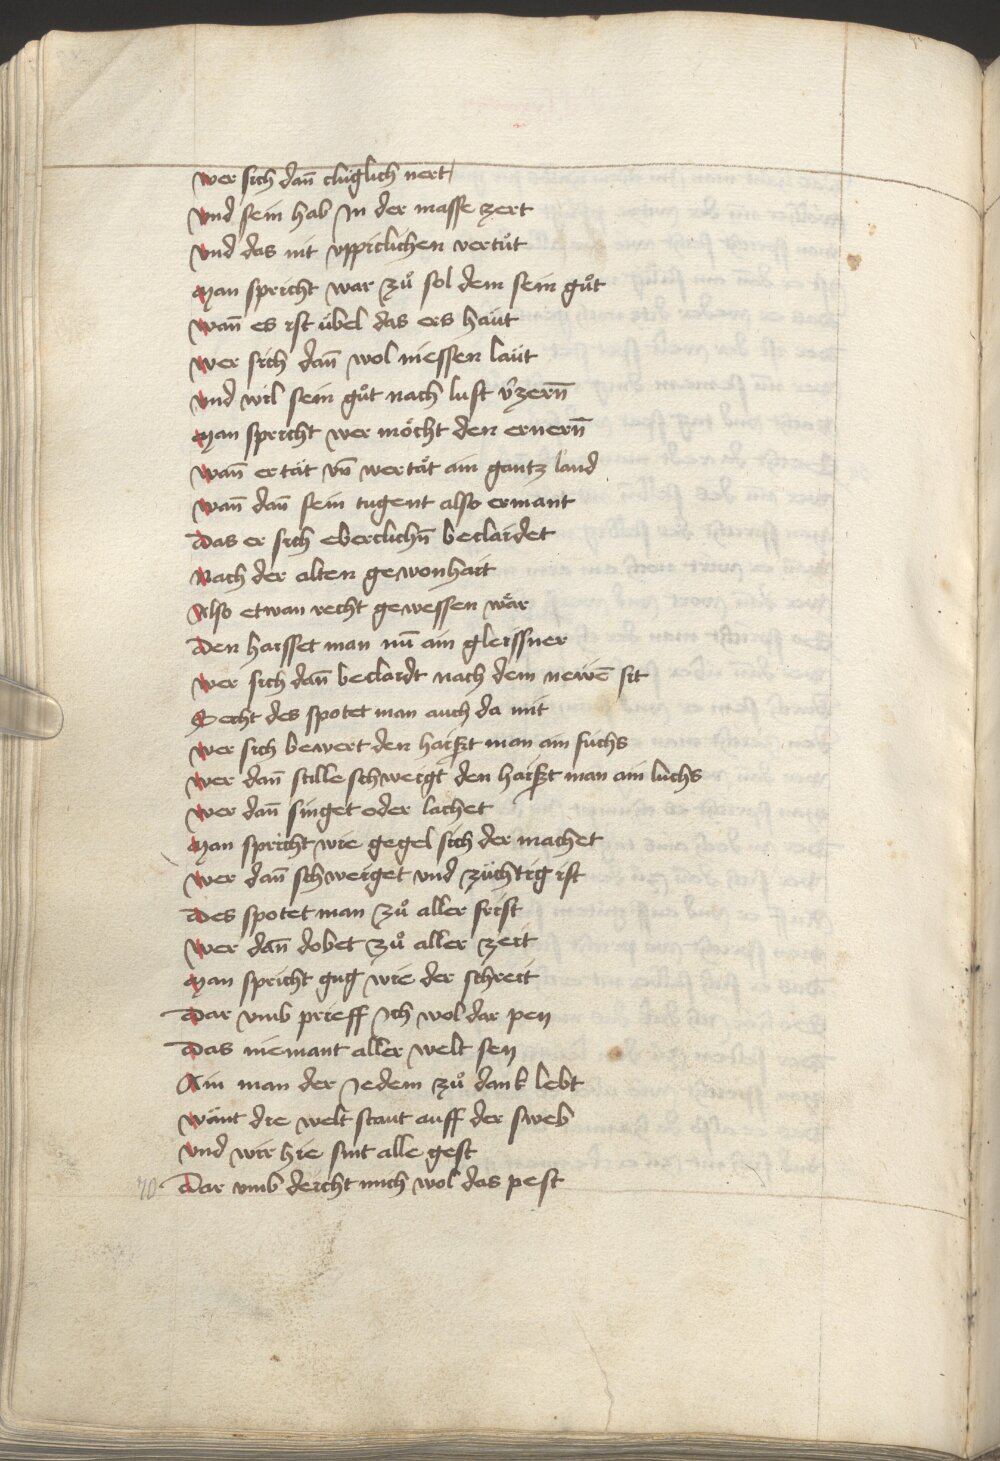 Wer sich dañ clůglich nert
Vnd sein hab In der masse zert
Vnd das nit vppiclichen vertůt
Man spricht war zů sol dem sein gůt
Wañ es ist übel das ers haüt
Wer sich dañ wol niessen laüt
Vnd wil sein gůt nach lust v̈zern̄
Man spricht wer möcht den ernern̄
Wañ er tät vn̄ vertät ain gantz land
Wañ dañ sein tugent also ermant
Das er sich eberclichn̄ beclaidet
Nach der alten gewonhait
Also etwan recht gewessen wär
Den haisset man nū ain gleissner
Wer sich dañ beclaidt nach dem newē sit
Secht des spotet man auch da mit
Wer sich bewert den haißt man ain fuchs
Wer dañ stille schweigt den haißt man ain luchs
Wer dañ singet oder lachet
Man spricht wie gegel sich der machet
Wer dañ schweiget vnd züchtig ist
Des spotet man zů aller frist
Wer dañ dobet zů aller zeit
Man spricht gug wie der schreit
Dar vmb prieff Ich wol dar pey
Das niemant aller welt sey
Ain man der Iedem zů dank lebt
Wänt die welt staut auff der sweb
Vnd wir hie sint alle gest
Dar vmb deicht mich wol das pest